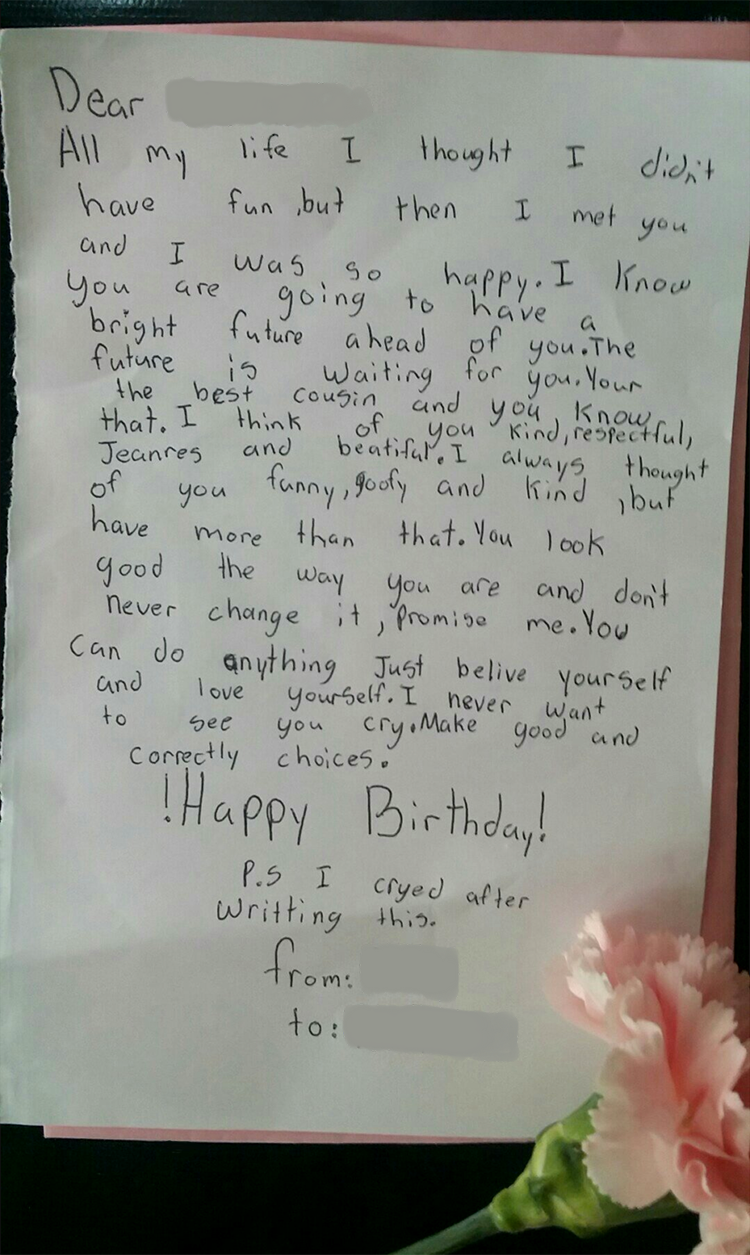 Dear
All my life I thought I didn't
have fun ,but then I met you
and I was so happy. I know
you are going to have a
bright future ahead of you.The
future is waiting for you.Your
the best cousin and you know
that. I think of you kind,respectful,
Jeanres and beatiful. I always thought
of you funny,goofy and kind ,but
have more than that. You look
good the way you are and don't
never change it, promise me. You
can do anything Just belive yourself
and love yourself. I never want
to see you cry.Make good and
correctly choices.
!Happy Birthday!
P.S I cryed after
writting this.
from:
to: